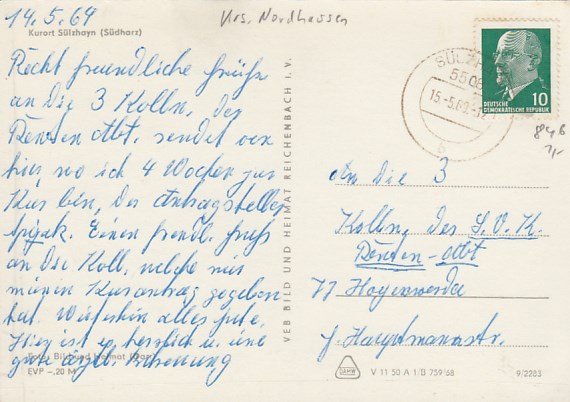 14.5.69
Krs. Nordhausen
Kurort Sülzhayn (Südharz)
Recht freundliche Grüße
an Die 3 Kolln, der
Renten Abt. sendet von
hier wo ich 4 Wochen zur
Kur bin, der Antragsteller
Einen freundl. Gruß
an Die Koll, welche mir
meinen Kurantrag gegeben
hat. Weiterhin alles gute,
Hier ist es herrlich u. eine
gute ärztl. Betreuung
Foto: Bild und Heimat
EVP -,20 M
VEB BILD UND HEIMAT REICHENBACH I. V.
SÜLZH
5508
15.-5.69-12
b
DEUTSCHE
DEMOKRATISCHE REPUBLIK
10
846
An Die 3
Kolln, der S.V.K.
Renten-Abt
77 Hoyerswerda
J. Hauptmannstr.
V 11 50 A 1/B 759/68
9/2283